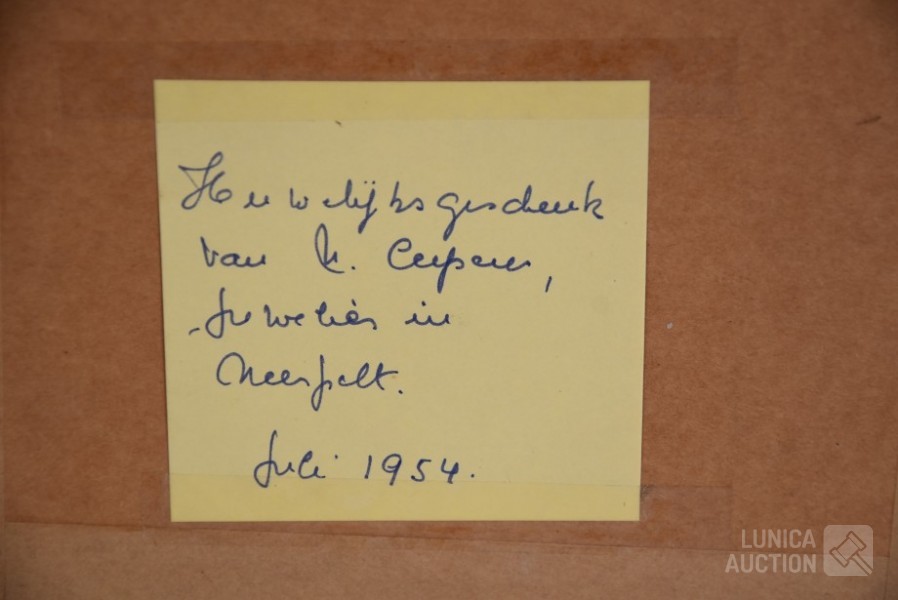 Huwelijksgeschenk
van
Juwelier in
Neerpelt.
Juli 1954.
LUNICA
AUCTION